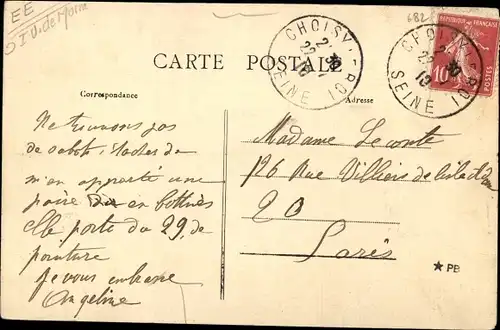 EE
682
CARTE POSTALE
CHOISY-LE-ROI
SEINE
CHOISY-LE-ROI
SEINE
REPUBLIQUE FRANÇAISE
10
POSTES
Correspondance
Adresse
Ne trouvons pas
de sabots, tachez de
m'en apporter une
paire en bottines
elle porte du 29 de
pointure
Je vous embrasse
Angeline
Madame Leconte
126 Rue Villiers de l'isle Adam
20
Paris
★ PB